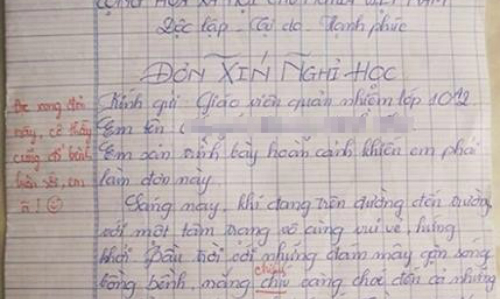 CỘNG HÒA XÃ HỘI CHỦ NGHĨA VIỆT NAM
Độc lập - Tự do - Hạnh phúc
ĐƠN XIN NGHỈ HỌC
Kính gửi: Giáo viên quản nhiệm lớp 10A2
Em tên:
Em xin trình bày hoàn cảnh khiến em phải
làm đơn này.
Sáng nay, khi đang trên đường đến trường
với một tâm trạng vô cùng vui vẻ, hứng
khởi. Bầu trời với những đám mây gợn sóng
bồng bềnh, nắng chíu càng chói đến cả những
chiếu
Đọc xong đơn
này, cô thấy
cũng đỡ bệnh
hẳn rồi, em
ạ!